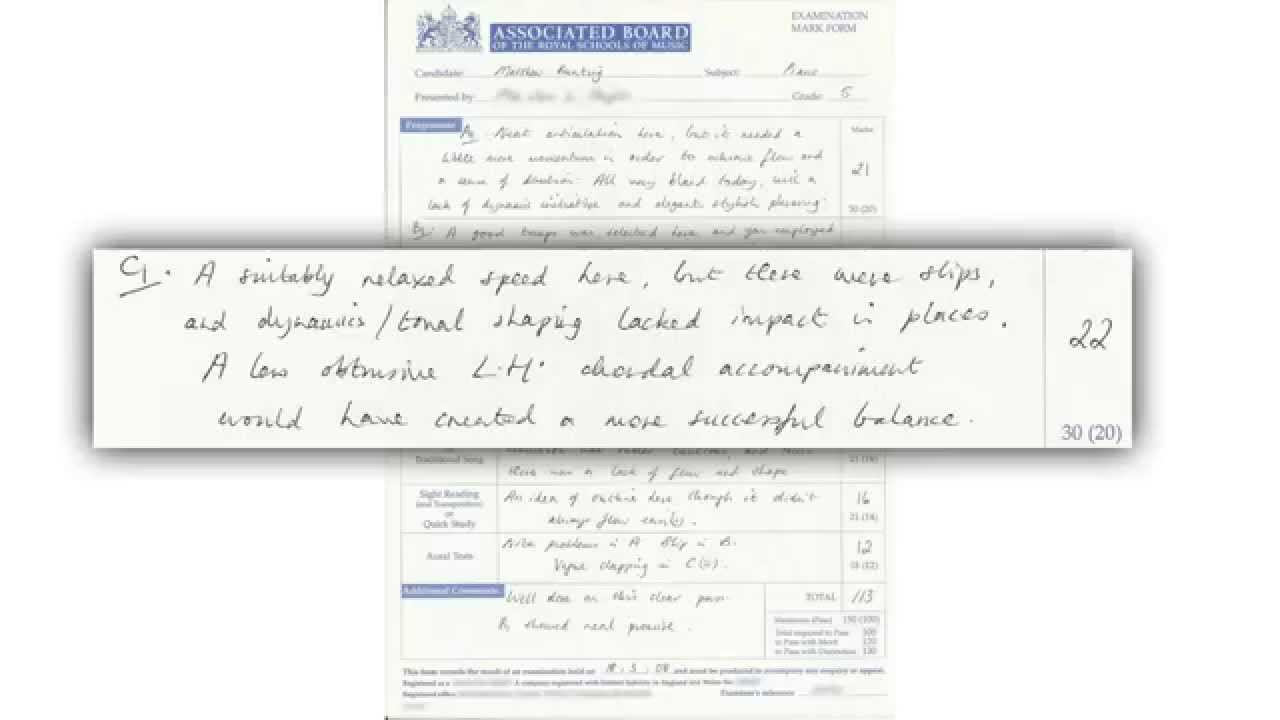 ASSOCIATED BOARD
OF THE ROYAL SCHOOLS OF MUSIC
EXAMINATION
MARK FORM
Candidate: Matthew Bunting Subject: Piano
Presented by: Grade: 5
Programme
Marks
A2 Neat articulation here, but it needed a
little more momentum in order to achieve flow and
a sense of direction. All very bland today, with a
lack of dynamic initiative and elegant, stylish phrasing.
21
30 (20)
B1. A good tempo was selected here and you employed
C1. A suitably relaxed speed here, but there were slips,
and dynamics/tonal shaping lacked impact in places.
A less obtrusive L.H. chordal accompaniment
would have created a more successful balance.
22
30 (20)
Traditional Song
there was a lack of flow and shape
21 (14)
Sight Reading
(and Transposition)
or
Quick Study
An idea of outline here though it didn't
always flow easily.
16
21 (14)
Aural Tests
problems in A Slip in B.
Vague clapping in C (ii).
12
18 (12)
Additional Comments
Well done on this clear pass.
B1 showed real promise.
TOTAL 113
Maximum (Pass) 150 (100)
Total required to Pass 100
to Pass with Merit 120
to Pass with Distinction 130
This form records the result of an examination held on 18.3.08 and must be produced to accompany any enquiry or appeal.
Registered as a A company registered with limited liability in England and Wales No.
Registered office
Examiner's reference